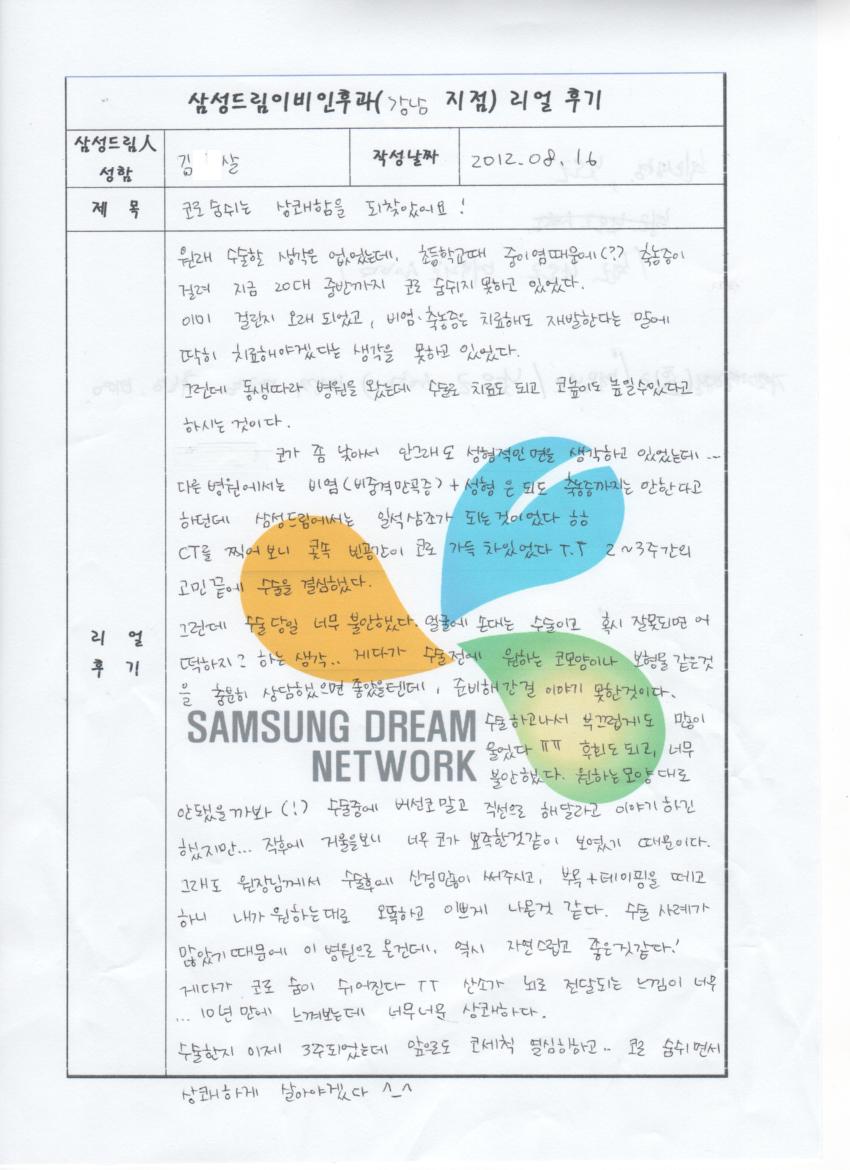 삼성드림이비인후과(강남 지점) 리얼 후기
삼성드림人 성함
김 살
작성날짜
2012.08.16
제 목
코로 숨쉬는 상쾌함을 되찾았어요!
리 얼
후 기
원래 수술할 생각은 없었는데, 초등학교때 중이염때문에(??) 축농증이
걸려 지금 20대 중반까지 코로 숨쉬지 못하고 있었다.
이미 걸린지 오래 되었고, 비염·축농증은 치료해도 재발한다는 말에
딱히 치료해야겠다는 생각을 못하고 있었다.
그런데 동생따라 병원을 왔는데 수술로 치료도 되고 코높이도 높일수있다고
하시는 것이다.
코가 좀 낮아서 안그래도 성형적인 면을 생각하고 있었는데...
다른 병원에서는 비염(비중격만곡증)+성형은 되도 축농증까지는 안한다고
하던데 삼성드림에서는 일석삼조가 되는것이었다 ㅎㅎ
CT를 찍어보니 콧속 빈공간이 코로 가득 차있었다 T.T 2~3주간의
고민끝에 수술을 결심했다.
그런데 수술 당일 너무 불안했다. 얼굴에 손대는 수술이고 혹시 잘못되면 어
떡하지? 하는 생각.. 게다가 수술전에 원하는 코모양이나 보형물 같은것
을 충분히 상담했으면 좋았을텐데, 준비해간걸 이야기 못한것이다.
SAMSUNG DREAM
NETWORK
수술하고나서 부끄럽게도 많이
울었다 ㅠㅠ 후회도 되고, 너무
불안했다. 원하는모양대로
안됐을까봐 (!) 수술중에 버선코말고 직선으로 해달라고 이야기하긴
했지만... 직후에 거울을보니 너무 코가 뾰족한것같이 보였기 때문이다.
그래도 원장님께서 수술후에 신경많이 써주시고, 부목+테이핑을 떼고
하니 내가 원하는대로 오똑하고 이쁘게 나온것 같다. 수술 사례가
많았기때문에 이 병원으로 온건데, 역시 자연스럽고 좋은것같다!
게다가 코로 숨이 쉬어진다 TT 산소가 뇌로 전달되는 느낌이 너무
... 10년 만에 느껴보는데 너무너무 상쾌하다.
수술한지 이제 3주되었는데 앞으로도 코세척 열심히하고.. 코로 숨쉬면서
상쾌하게 살아야겠다 ^_^